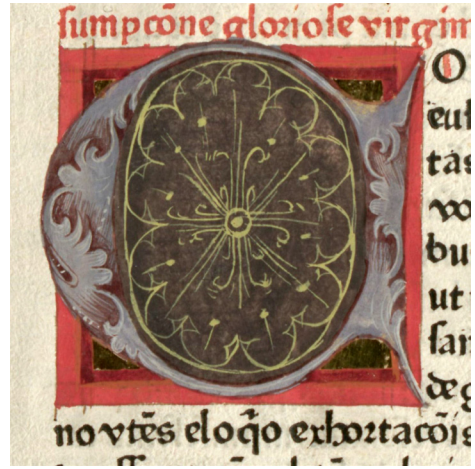 sumpcõne gloriose virgin
O
euſ
tas
vo
bu
ut
ſan
de g
no vtẽs eloq̃o exhortacõis